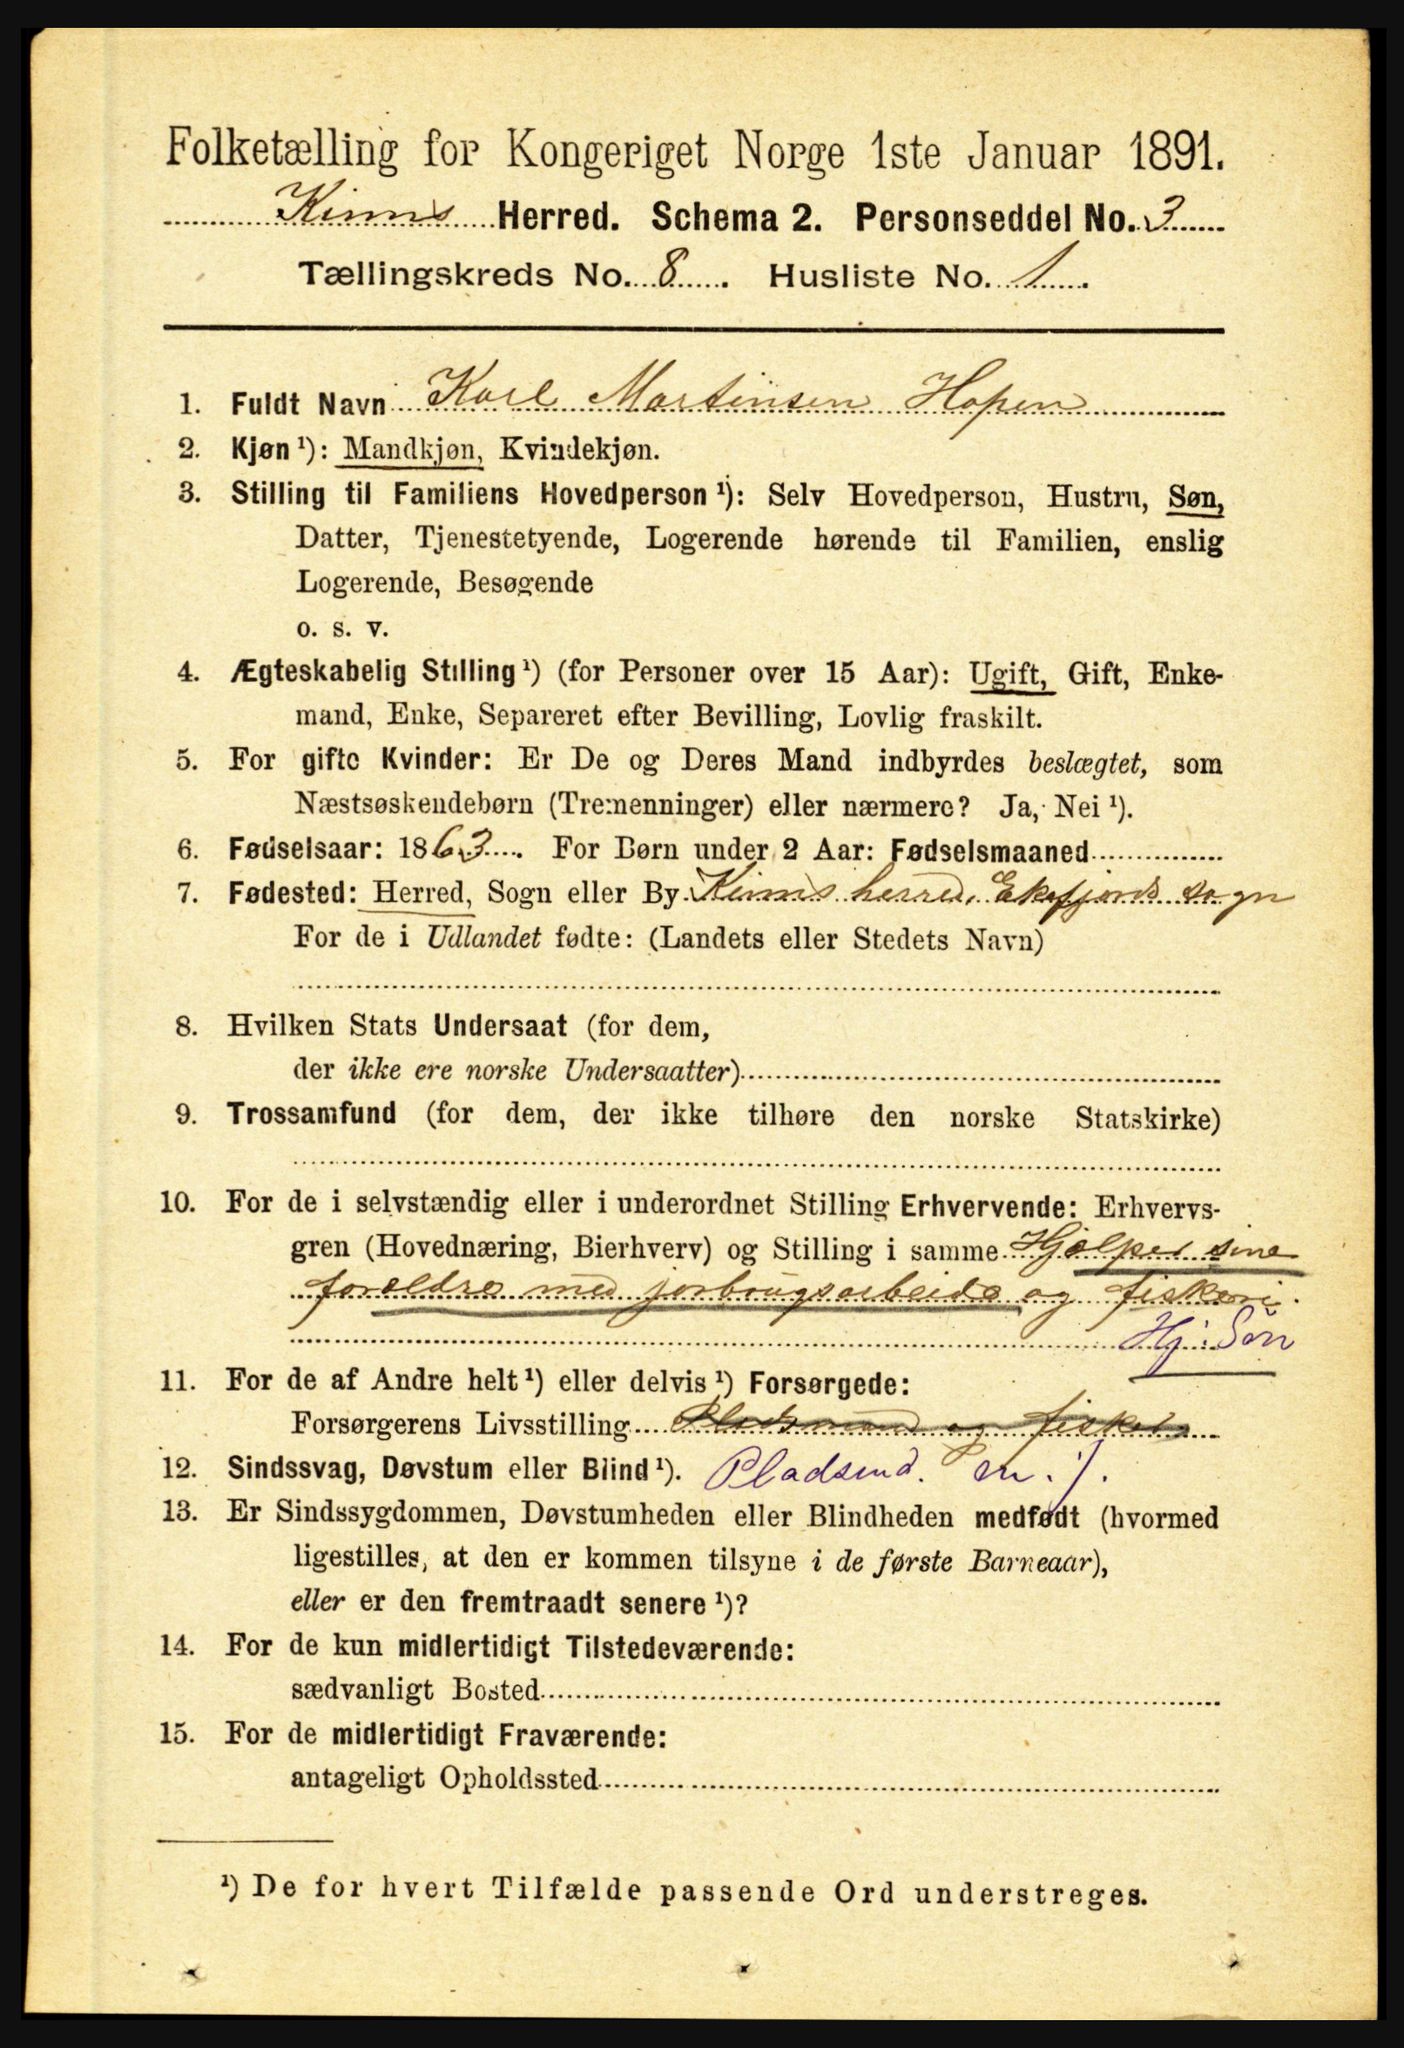 Folketælling for Kongeriget Norge 1ste Januar 1891.
Kinns Herred. Schema 2. Personseddel No. 3
Tællingskreds No. 8. Husliste No. 1.
1. Fuldt Navn Karl Martinsen Hopen
2. Kjøn ¹): Mandkjøn, Kvindekjøn.
3. Stilling til Familiens Hovedperson ¹): Selv Hovedperson, Hustru, Søn,
Datter, Tjenestetyende, Logerende hørende til Familien, enslig
Logerende, Besøgende
o. s. v.
4. Ægteskabelig Stilling ¹) (for Personer over 15 Aar): Ugift, Gift, Enke-
mand, Enke, Separeret efter Bevilling, Lovlig fraskilt.
5. For gifte Kvinder: Er De og Deres Mand indbyrdes beslægtet, som
Næstsøskendebørn (Tremenninger) eller nærmere? Ja, Nei ¹).
6. Fødselsaar: 1863. For Børn under 2 Aar: Fødselsmaaned
7. Fødested: Herred, Sogn eller By Kinns herred, Ekefjords sogn
For de i Udlandet fødte: (Landets eller Stedets Navn)
8. Hvilken Stats Undersaat (for dem,
der ikke ere norske Undersaatter)
9. Trossamfund (for dem, der ikke tilhøre den norske Statskirke)
10. For de i selvstændig eller i underordnet Stilling Erhvervende: Erhvervs-
gren (Hovednæring, Bierhverv) og Stilling i samme Hjælper sine
forældre med jorbrugsarbeide og fiskeri.
Hj. Søn
11. For de af Andre helt ¹) eller delvis ¹) Forsørgede:
Forsørgerens Livsstilling Pladsmand og fisker
12. Sindssvag, Døvstum eller Blind ¹). Pladsmd. m. j.
13. Er Sindssygdommen, Døvstumheden eller Blindheden medfødt (hvormed
ligestilles, at den er kommen tilsyne i de første Barneaar),
eller er den fremtraadt senere ¹)?
14. For de kun midlertidigt Tilstedeværende:
sædvanligt Bosted
15. For de midlertidigt Fraværende:
antageligt Opholdssted
¹) De for hvert Tilfælde passende Ord understreges.